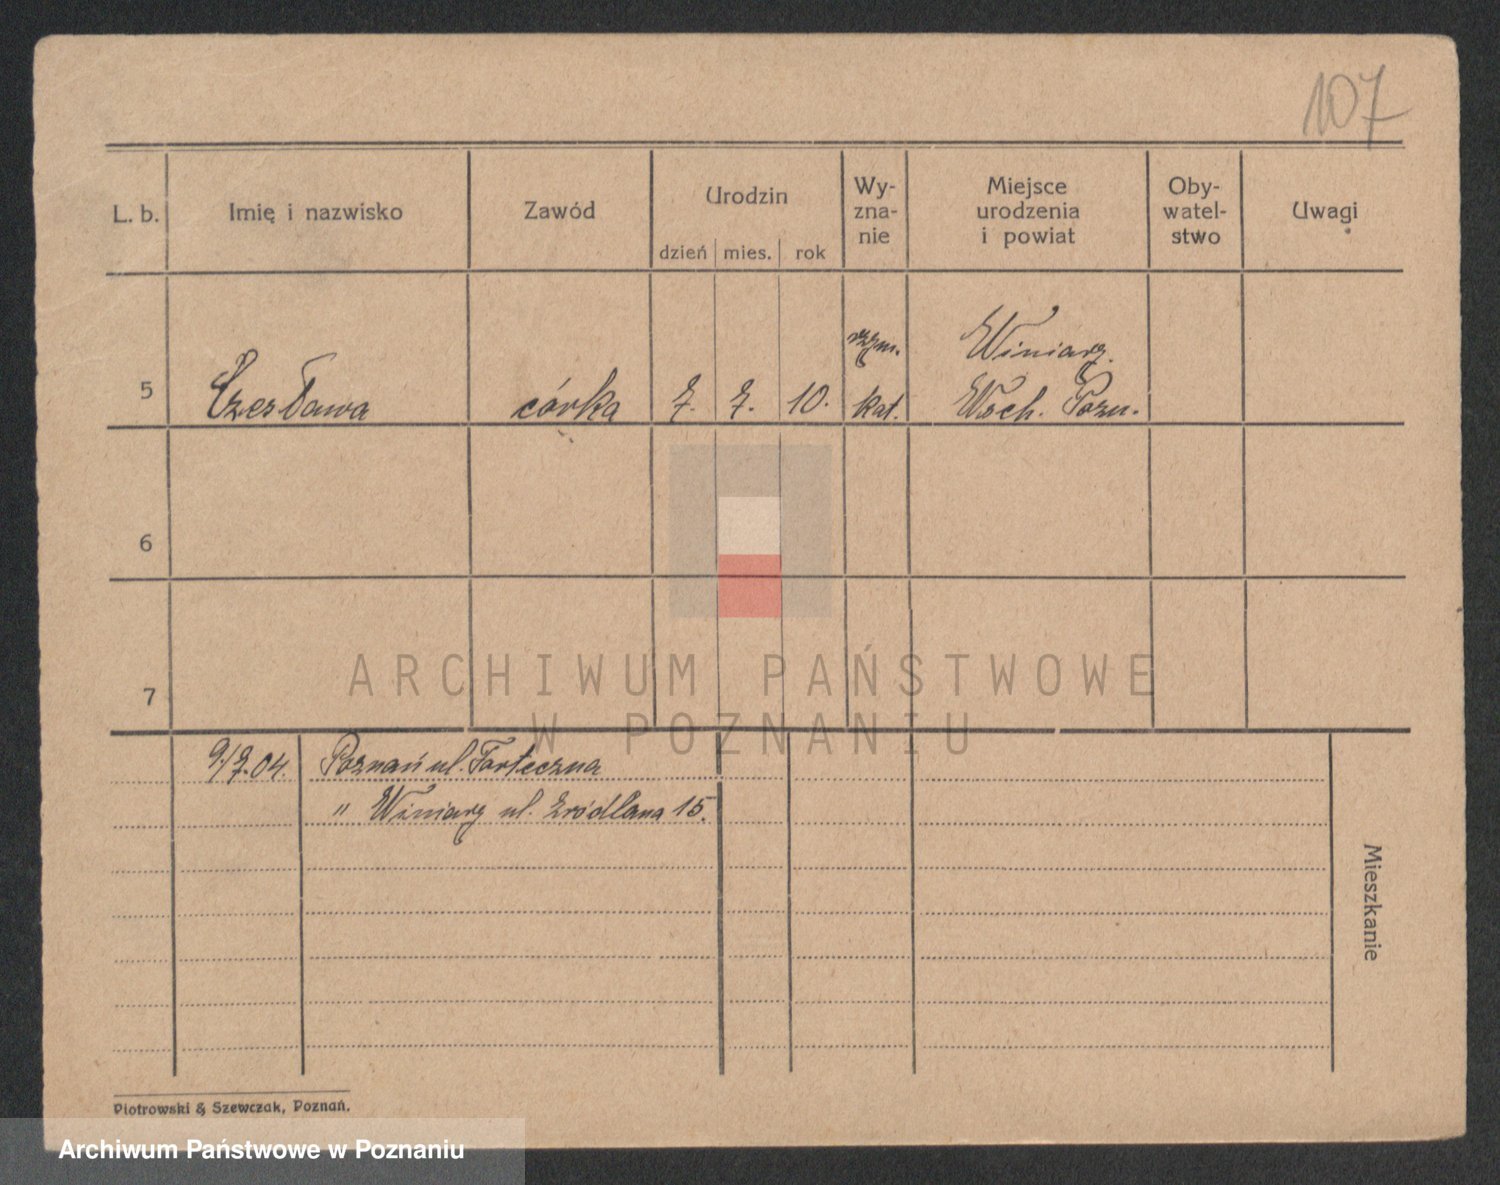 107
L. b. Imię i nazwisko Zawód Urodzin Wy-
zna-
nie Miejsce
urodzenia
i powiat Oby-
watel-
stwo Uwagi
dzień mies. rok
rzym. Winiary.
5 Czesława córka 7. 7. 10. kat. Wsch. Pozn.
6
7
ARCHIWUM PAŃSTWOWE
W POZNANIU
9./7.04. Poznań ul. Forteczna
" Winiary ul. Źródlana 15.
Mieszkanie
Piotrowski & Szewczak, Poznań.
Archiwum Państwowe w Poznaniu